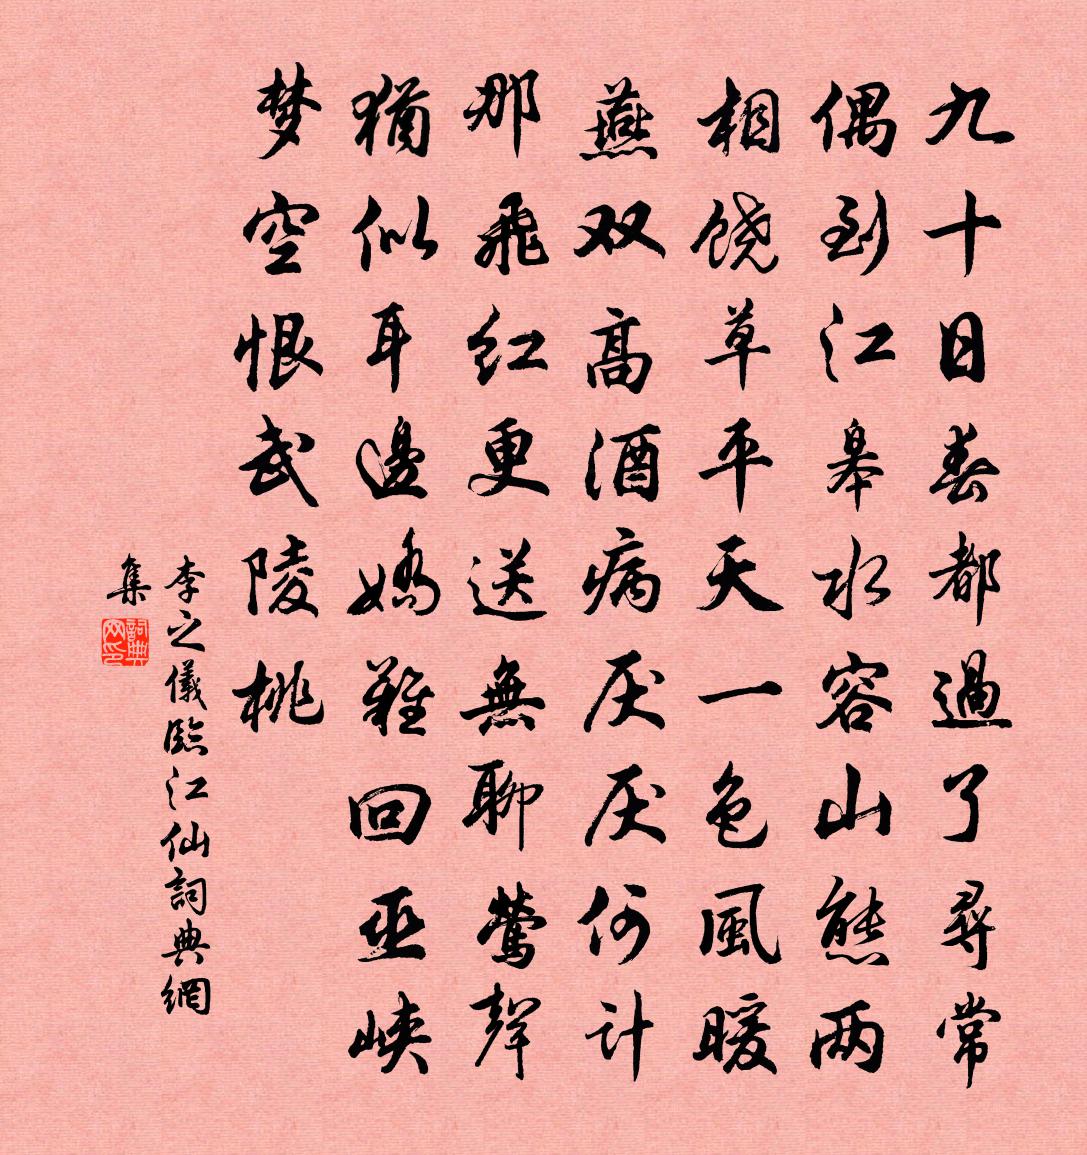 九十日春都過了尋常
偶到江皋水容山態两
相饶草平天一色風暖
燕双高酒病厌厌何计
那飛红更送無聊鶯聲
猶似耳邊嬌難回巫峡
梦空恨武陵桃
李之儀臨江仙詞典網
集
詞典
网印